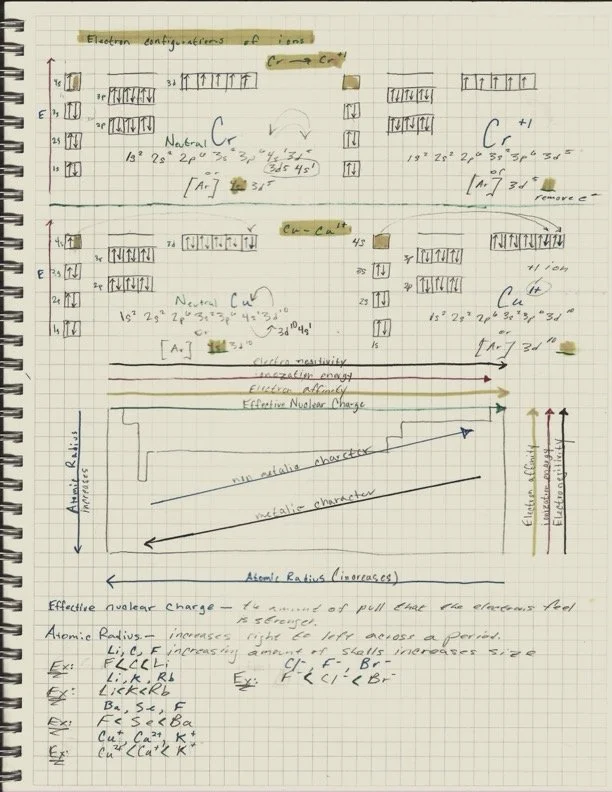 Electron configurations of ions
Cr → Cr+1
4s 3d
3p
3s
E
2p
2s
1s
Neutral Cr
1s² 2s² 2p⁶ 3s² 3p⁶ 4s¹ 3d⁵
or 3d5 4s¹
[Ar] 3d⁵
Cr+1
1s² 2s² 2p⁶ 3s² 3p⁶ 3d⁵
or
[Ar] 3d⁵
remove e⁻
Cu - Cu1+
4s 3d
3p
3s
E
2p
2s
1s
Neutral Cu
1s² 2s² 2p⁶ 3s² 3p⁶ 4s¹ 3d¹⁰
or 3d¹⁰ 4s¹
[Ar] 3d¹⁰
4s
3p
3s
+1 ion
2p
2s
Cu 1+
1s² 2s² 2p⁶ 3s² 3p⁶ 3d¹⁰
or
1s
[Ar] 3d¹⁰
electro nesitivity
ionization energy
Electron affinity
Effective Nuclear Charge
Atomic Radius
increases
non metalic charcter
metalic character
Electron affinity
ionization energy
Electronesitivity
Atomic Radius (increases)
Effective nuclear charge – the amount of pull that the electrons feel
is stronger.
Atomic Radius – increases right to left across a period.
Li, C, F increasing amount of shells increases size
Ex: F<C<Li
Cl⁻, F⁻, Br⁻
Li, K, Rb
Ex: F⁻<Cl⁻<Br⁻
Ex: Li<K<Rb
Ba, Se, F
Ex: F< Se<Ba
Cu⁺, Ca²⁺, K⁺
Ex: Cu²⁺<Ca⁺< K⁺